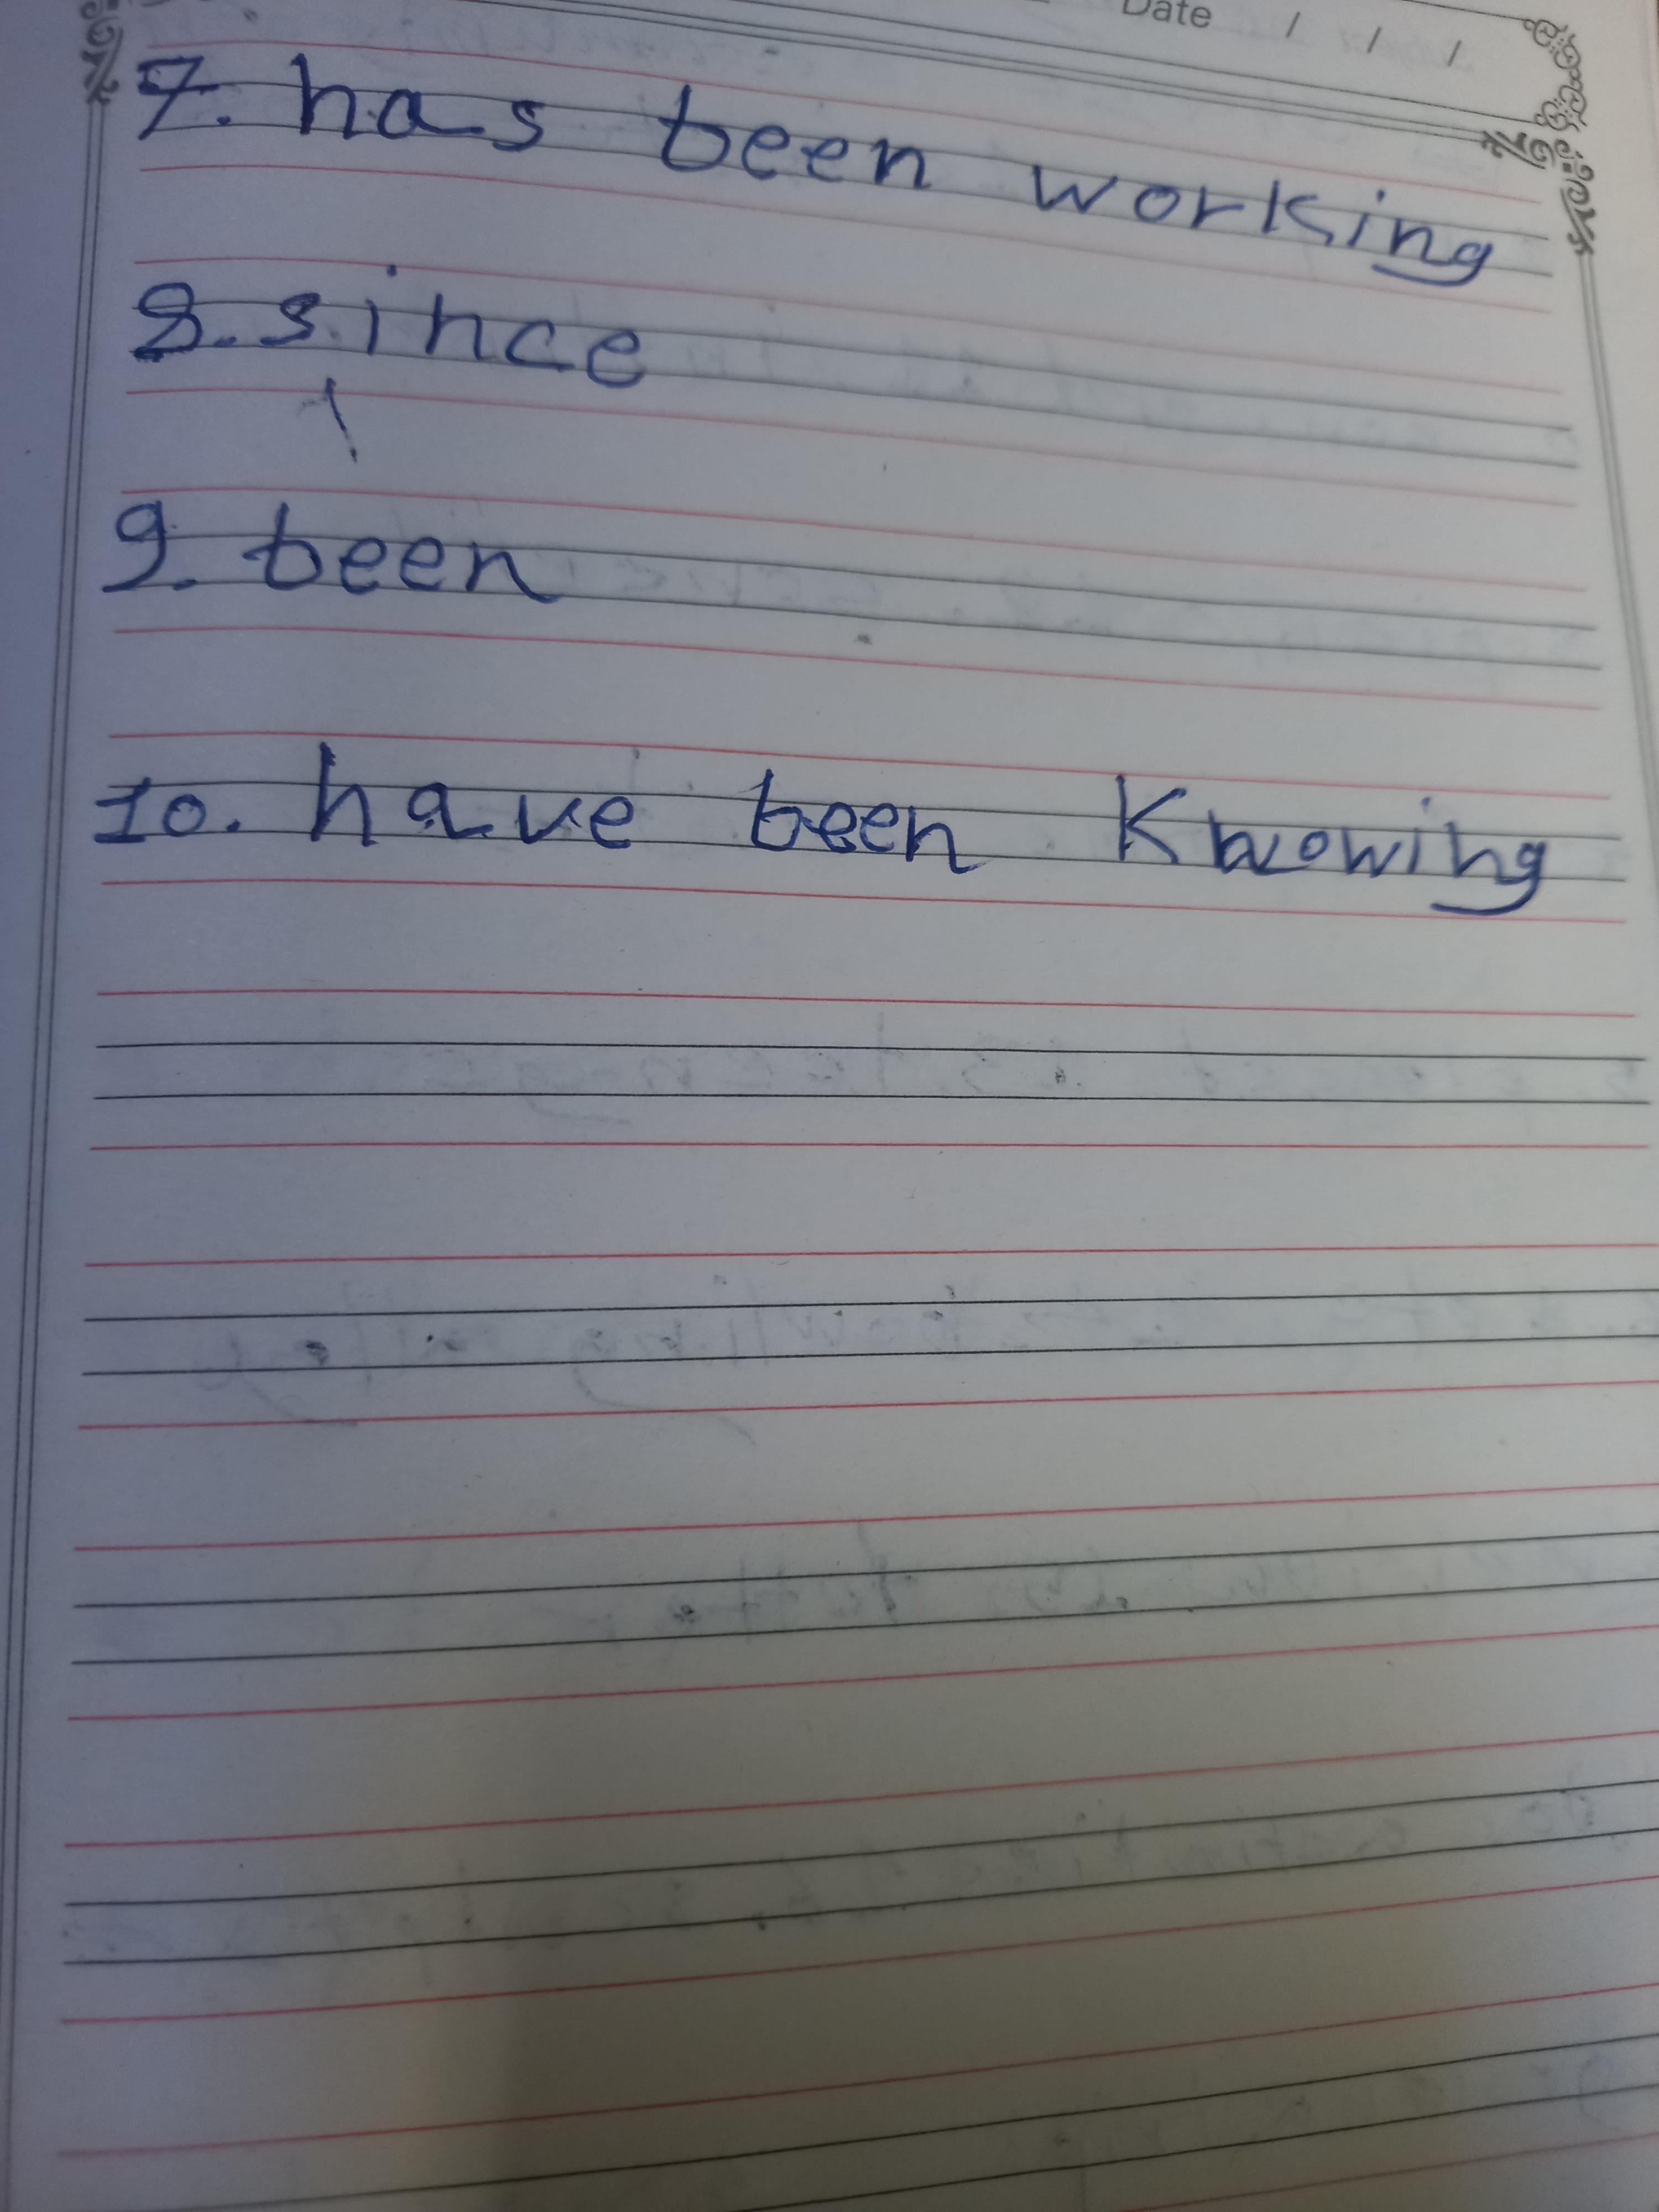 Date / / /
7. has been working
8. since
9. been
10. have been Knowing